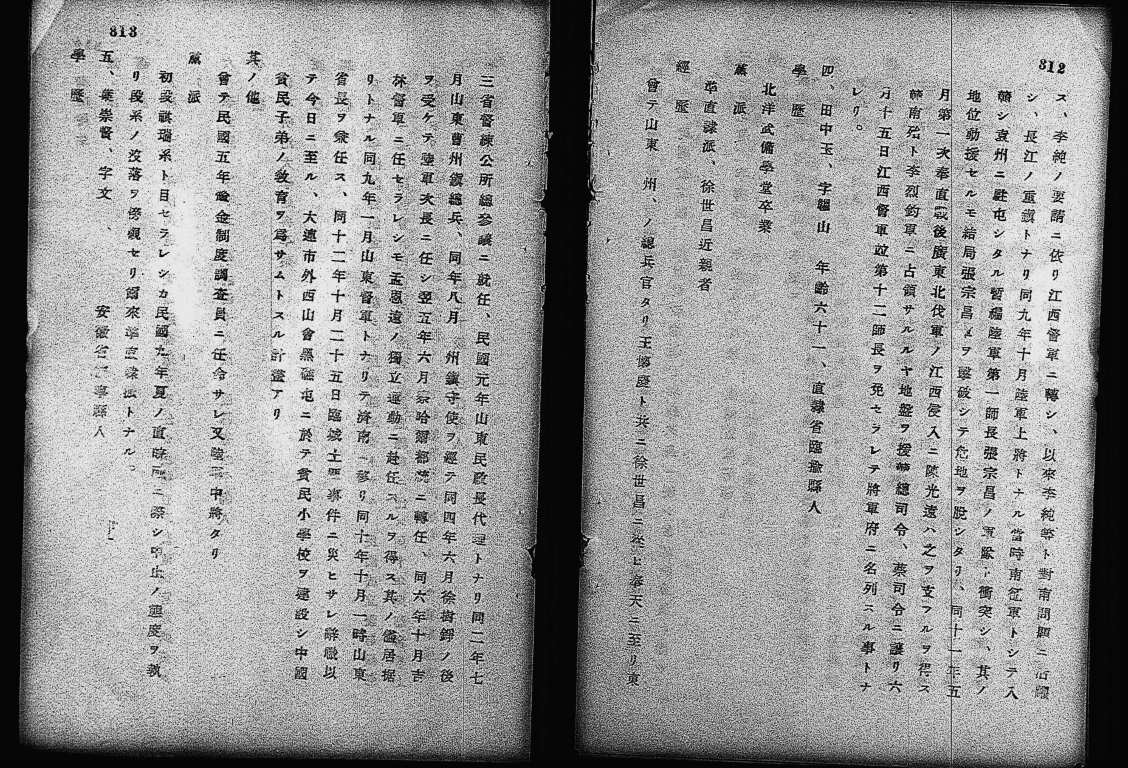 812
ス、李純ノ要請ニ依リ江西督軍ニ轉シ、以來李純等ト對南問題ニ活躍
シ、長江ノ重鎭トナリ同九年十月陸軍上將トナル當時南征軍トシテ入
贛シ袁州ニ駐屯シタル暫編陸軍第一師長張宗昌ノ軍隊ト衝突シ、其ノ
地位動援セルモ結局張宗昌軍ヲ擊破シテ危地ヲ脫シタリ、同十一年五
月第一次奉直戰後廣東北伐軍ノ江西侵入ニ陳光遠ハ之ヲ支フルヲ得ス
贛南殆ト李烈鈞軍ニ占領サルルヤ地盤ヲ援贛總司令、蔡司令ニ讓リ六
月十五日江西督軍竝第十二師長ヲ免セラレテ將軍府ニ名列スル事トナ
レリ。
四、田中玉、字韞山 年齡六十一、直隸省臨楡縣人
學歷
北洋武備學堂卒業
黨派
準直隸派、徐世昌近親者
經歷
曾テ山東 州、ノ總兵官タリ王懷慶ト共ニ徐世昌ニ從ヒ奉天ニ至リ東
813
三省督練公所總參議ニ就任、民國元年山東民政長代理トナリ同二年七
月山東曹州鎭總兵、同年八月 州鎭守使ヲ經テ同四年六月徐樹錚ノ後
ヲ受ケテ陸軍次長ニ任シ翌五年六月察哈爾都統ニ轉任、同六年十月吉
林督軍ニ任セラレシモ孟恩遠ノ獨立運動ニ赴任スルヲ得ス其ノ儘居据
リトナル同九年一月山東督軍トナリテ濟南ニ移リ同十年十月一時山東
省長ヲ兼任ス、同十二年十月二十五日臨城土匪事件ニ災ヒサレ辭職以
テ今日ニ至ル、大連市外西山會黑礁屯ニ於テ貧民小學校ヲ建設シ中國
貧民子弟ノ敎育ヲ爲サムトスル計畫アリ
其ノ他
曾テ民國五年 金制度調査員ニ任命サレ又陸軍中將タリ
黨派
初段祺瑞系ト目セラレシカ民國九年夏ノ直皖戰ニ際シ中止ノ態度ヲ執
リ段系ノ沒落ヲ傍觀セリ爾來準直隸派トナル。
五、葉崇督、字文 、 安徽省 縣人
學歷